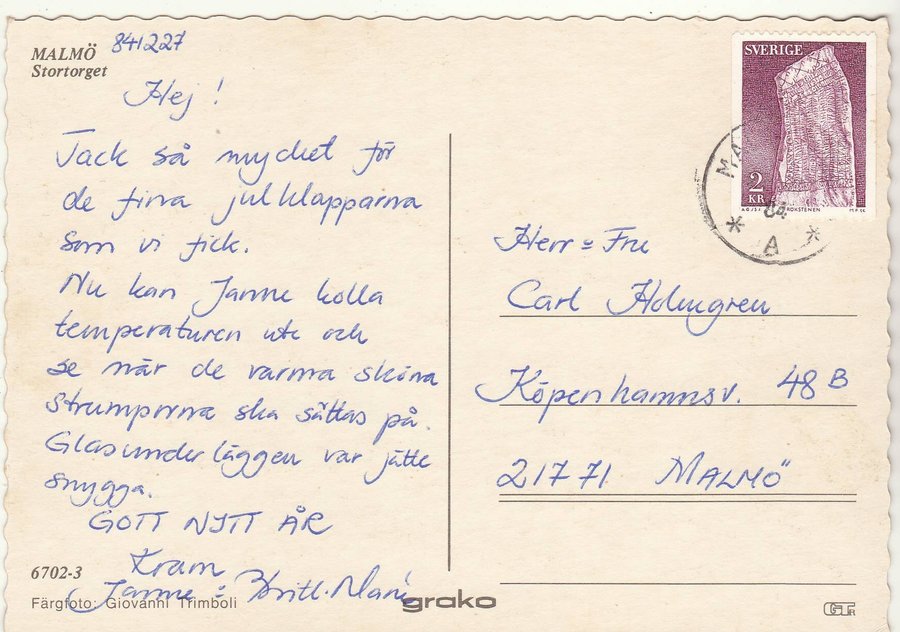 MALMÖ
Stortorget
841227
Hej!
Tack så mycket för
de fina julklapparna
som vi fick.
Nu kan Janne kolla
temperaturen ute och
se när de varma sköna
strumporna ska sättas på.
Glasunderläggen var jätte
snygga.
GOTT NYTT ÅR
Kram
Janne = Britt-Marie
6702-3
Färgfoto: Giovanni Trimboli
grako
SVERIGE
2
KR
ROKSTENEN
MA
84
* A *
Herr = Fru
Carl Holmgren
Köpenhamnsv. 48 B
21771 MALMÖ
GTR